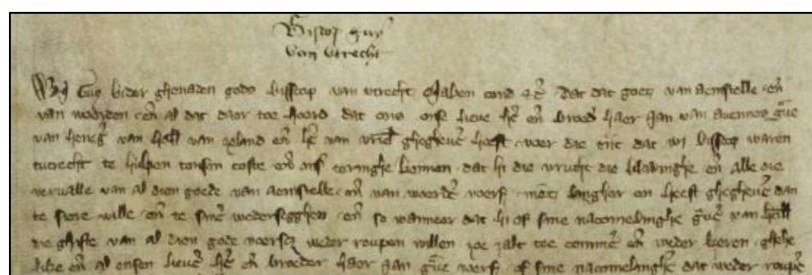 Bisscop guy
van utrecht
Wi Guy bider ghenaden gods bisscop van utrecht maken cond dat dat goet van aemstelle en̄
van woerden en̄ al dat daer toe hoord dat ons onse lieve h̄e en̄ broed haer Jan van avennes g̃ve
van heneg̃ van holl van zeland en̄ h̄e van vriesl ghegheve heeft voer die tijt dat wi bisscop waren
tutrecht te hulpen tonsen coste ons onse coninghe binnen dat hi die vrucht die blivinghe en̄ alle die
vervalle van al dien goede van aemstelle en̄ van woerde voers langher en heeft ghegheve dan
te sine wille en̄ te sine wedersegghen en̄ so wanneer dat hi of sine nacomelinghe g̃ve van holl
die ghifte van al dien gode voers weder roupen willen zoe zalt toe comme en̄ weder keren ghehe
like en̄ al onsen lieve h̄e en̄ broeder haer Jan g̃ve voers of sine nacomelinghe dat weder roupe